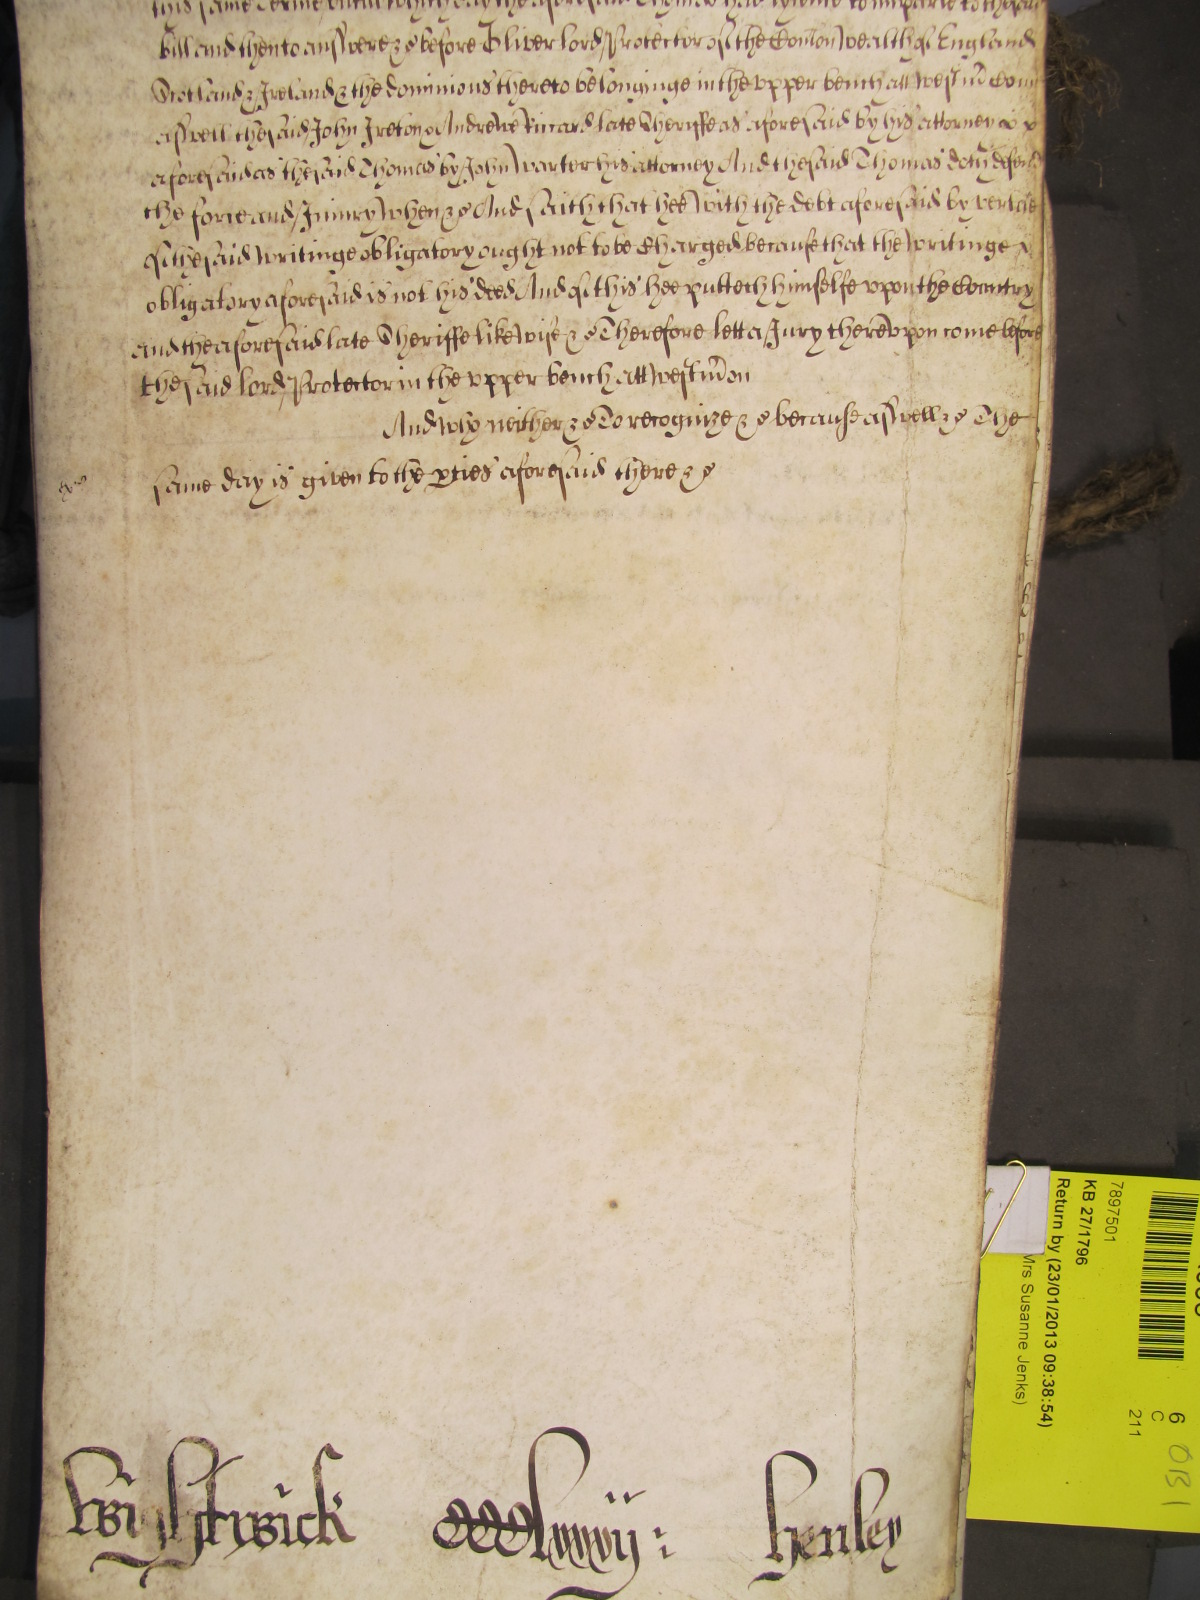 this same Terme untill which day the aforesaid Thomas had lycence to imparle to the said
bill and then to answere &c before Oliver lord Protector of the Comon wealth of England
Scotland & Ireland & the dominions thereto belonginge in the upper bench att Westm Come
aswell the said John Ireton & Andrewe Riccard late Sheriffe as aforesaid by his attorney
aforesaid as the said Thomas by John Warter his attorney And the said Thomas doth defend
the force and Iniury when &c And saith that hee with the debt aforesaid by vertue
of the said writinge obligatory ought not to be Charged because that the writinge
obligatory aforesaid is not his deed And of this hee putteth himselfe upon the Countrey
and the aforesaid late Sheriffe likewise &c Therefore lett a Jury thereupon come before
the said lord Protector in the upper bench att Westm on
And who neither &c To recognize &c because aswell &c The
same day is given to the pties aforesaid there &c
Wightwick
henley
7897501
KB 27/1796
Return by (23/01/2013 09:38:54)
Mrs Susanne Jenks)
6
C
211
OB1